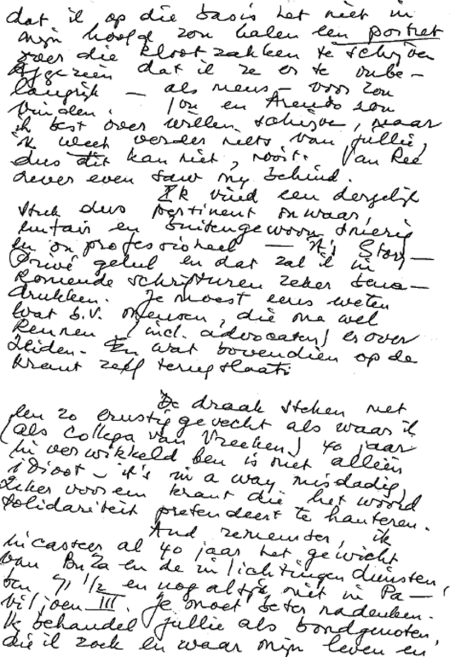 dat ik op die basis het niet in
mijn hoofd zou halen een portret
over die klootzakken te schrijven
Afgezien dat ik ze er te onbe-
langrijk — als mens — voor zou
vinden. Jou en Arends zou
ik best over willen schrijven, maar
ik weet verder niets van jullie,
dus dit kan niet, nooit. Van Ree
never even saw my behind.
Ik vind een dergelijk
stuk dus pertinent onwaar,
en buitengewoon smerig
en onprofessioneel — it's Story-
Privé gelul en dat zal ik in
komende schrifturen zeker bena-
drukken. Je moest eens weten
wat b.v. mensen, die me wel
kennen (incl. advocaten) er over
zeiden. En wat bovendien op de
krant zelf terugslaat.
De draak steken met
een zo ernstig gevecht als waar ik
(als collega van Vreeken) 40 jaar
in verwikkeld ben is niet alleen
idioot — it's in a way misdadig,
zeker voor een krant die het woord
solidariteit pretendeert te hanteren.
And remember, ik
incasseer al 40 jaar het gewicht
van BuZa en de inlichtingendiensten,
ben 71 1/2 en nog altijd niet in Pa-
viljoen III. Je moet beter nadenken.
Ik behandel jullie als bondgenoten,
die ik zoek en waar mijn leven en